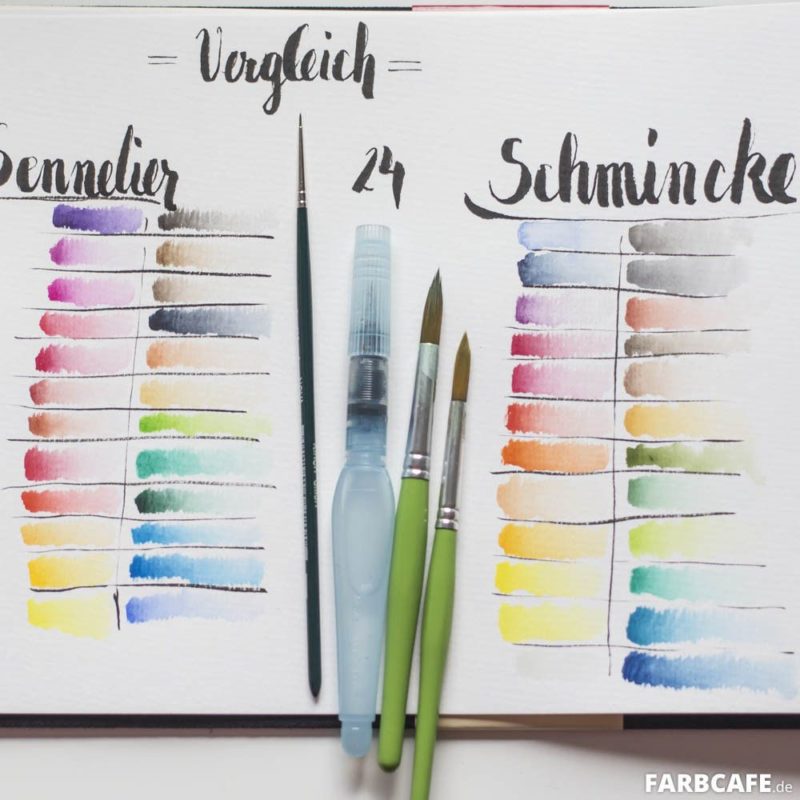 = Vergleich =
Sennelier
24
Schmincke
FARBCAFE.de